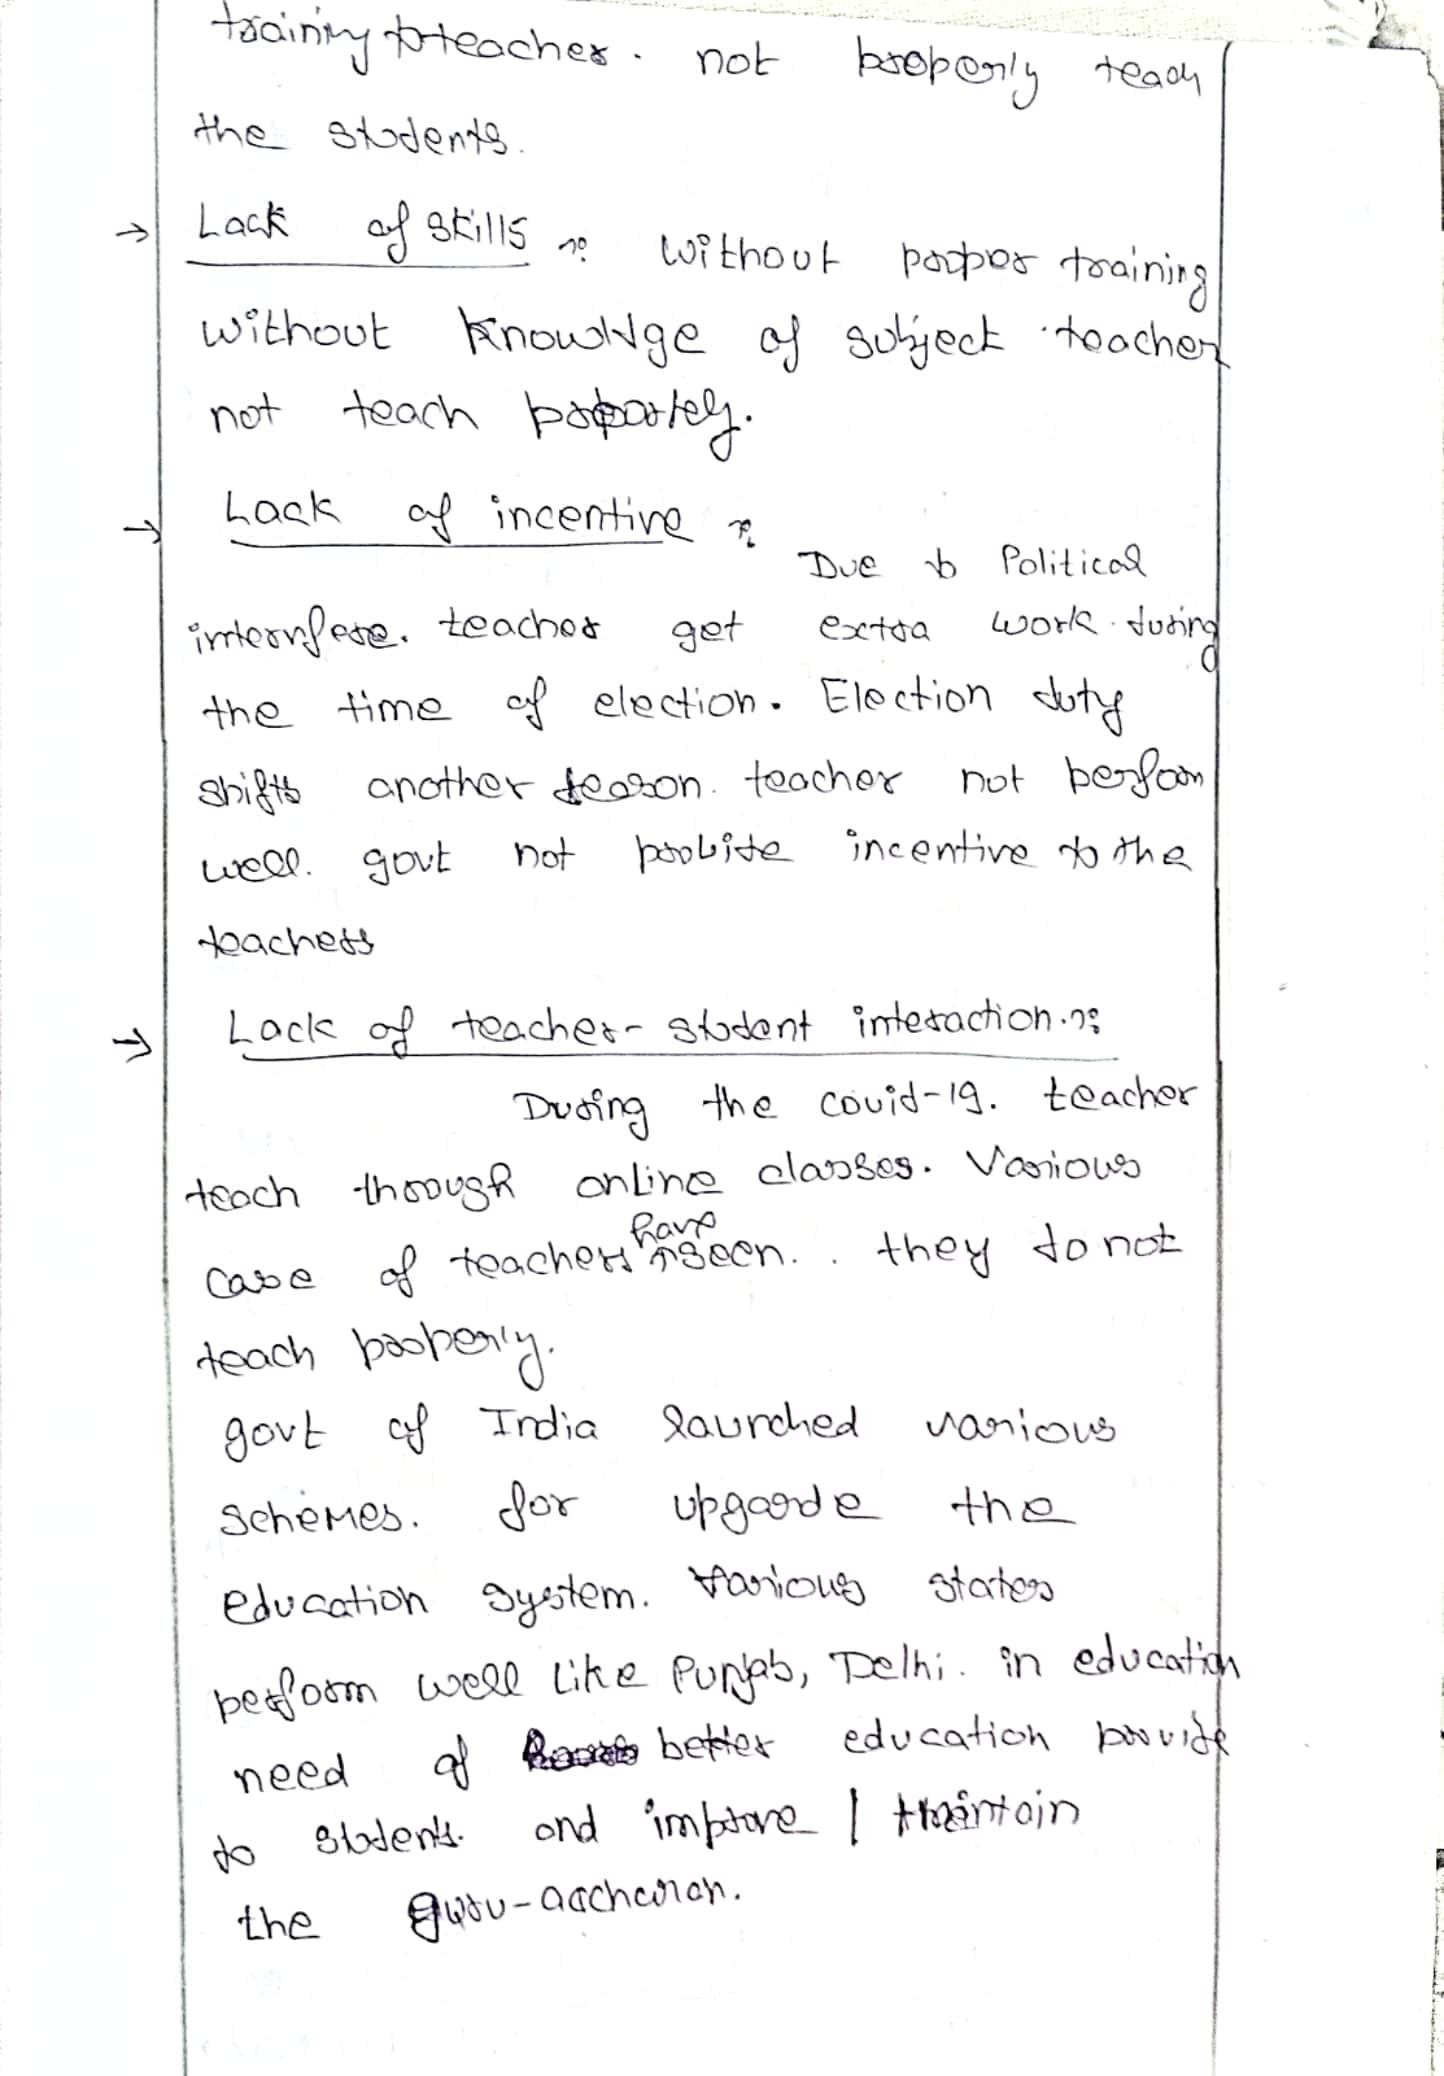 training to teacher. not properly teach
the students.
→ Lack of skills :- without proper training
without knowldge of subject teacher
not teach
→ Lack of incentive :-
Due to Political
internfere. teacher get extra work during
the time of election. Election duty
shifts another reason. teacher not perform
well. govt not probide incentive to the
teachers
→ Lack of teacher- student interaction :-
During the covid-19. teacher
teach through online classes. Various
case of teachers have seen. . they do not
teach properly.
govt of India launched various
schemes. for upgarde the
education system. Various states
perform well like Punjab, Delhi. in education
need of better education provide
to students. and improve / maintain
the guru-aacharan.